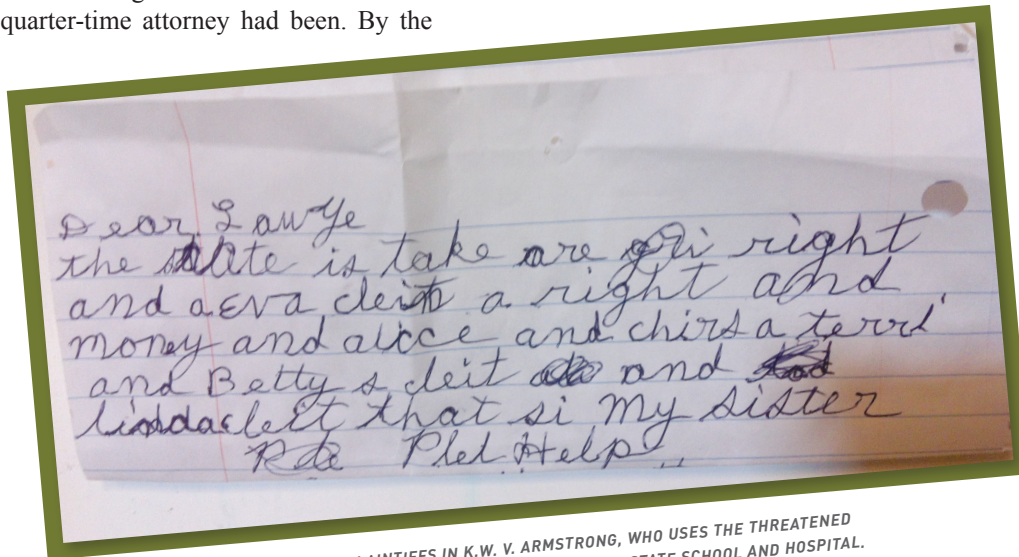 quarter-time attorney had been. By the
Dear Lawye
the state is take are right
and a Eva cleit a right and
money and alicce and chirs a terri
and Betty s cleit and
lindacleit that si my sister
Pled Help
AINTIFFS IN K.W. V. ARMSTRONG, WHO USES THE THREATENED
STATE SCHOOL AND HOSPITAL.